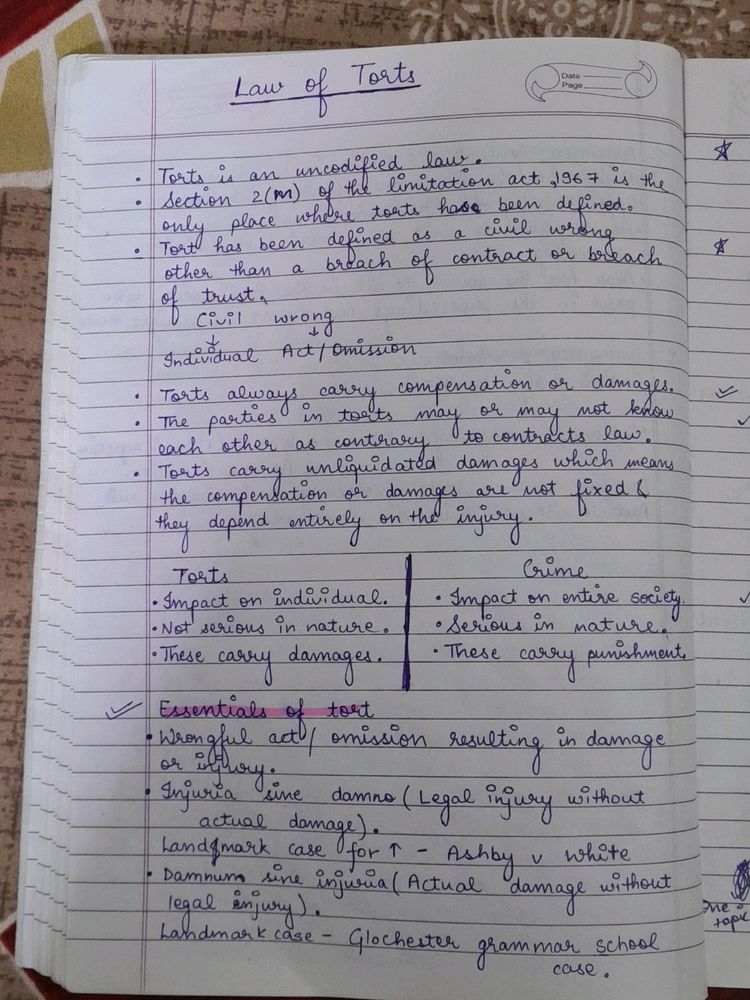 Law of Torts
Date
Page
• Torts is an uncodified law.
• Section 2(m) of the limitation act, 1967 is the
only place where torts have been defined.
• Tort has been defined as a civil wrong
other than a breach of contract or breach
of trust.
Civil wrong
↓ ↓
Individual Act/Omission
• Torts always carry compensation or damages.
• The parties in torts may or may not know
each other as contrary to contracts law.
• Torts carry unliquidated damages which means
the compensation or damages are not fixed &
they depend entirely on the injury.
Torts
• Impact on individual.
• Not serious in nature.
• These carry damages.
Crime
• Impact on entire society.
• Serious in nature.
• These carry punishment.
Essentials of tort
• Wrongful act / omission resulting in damage
or injury.
• Injuria sine damno (Legal injury without
actual damage).
Landmark case for ↑ - Ashby v White
• Damnum sine injuria (Actual damage without
legal injury).
Landmark case - Glochester grammar school
case.
topic